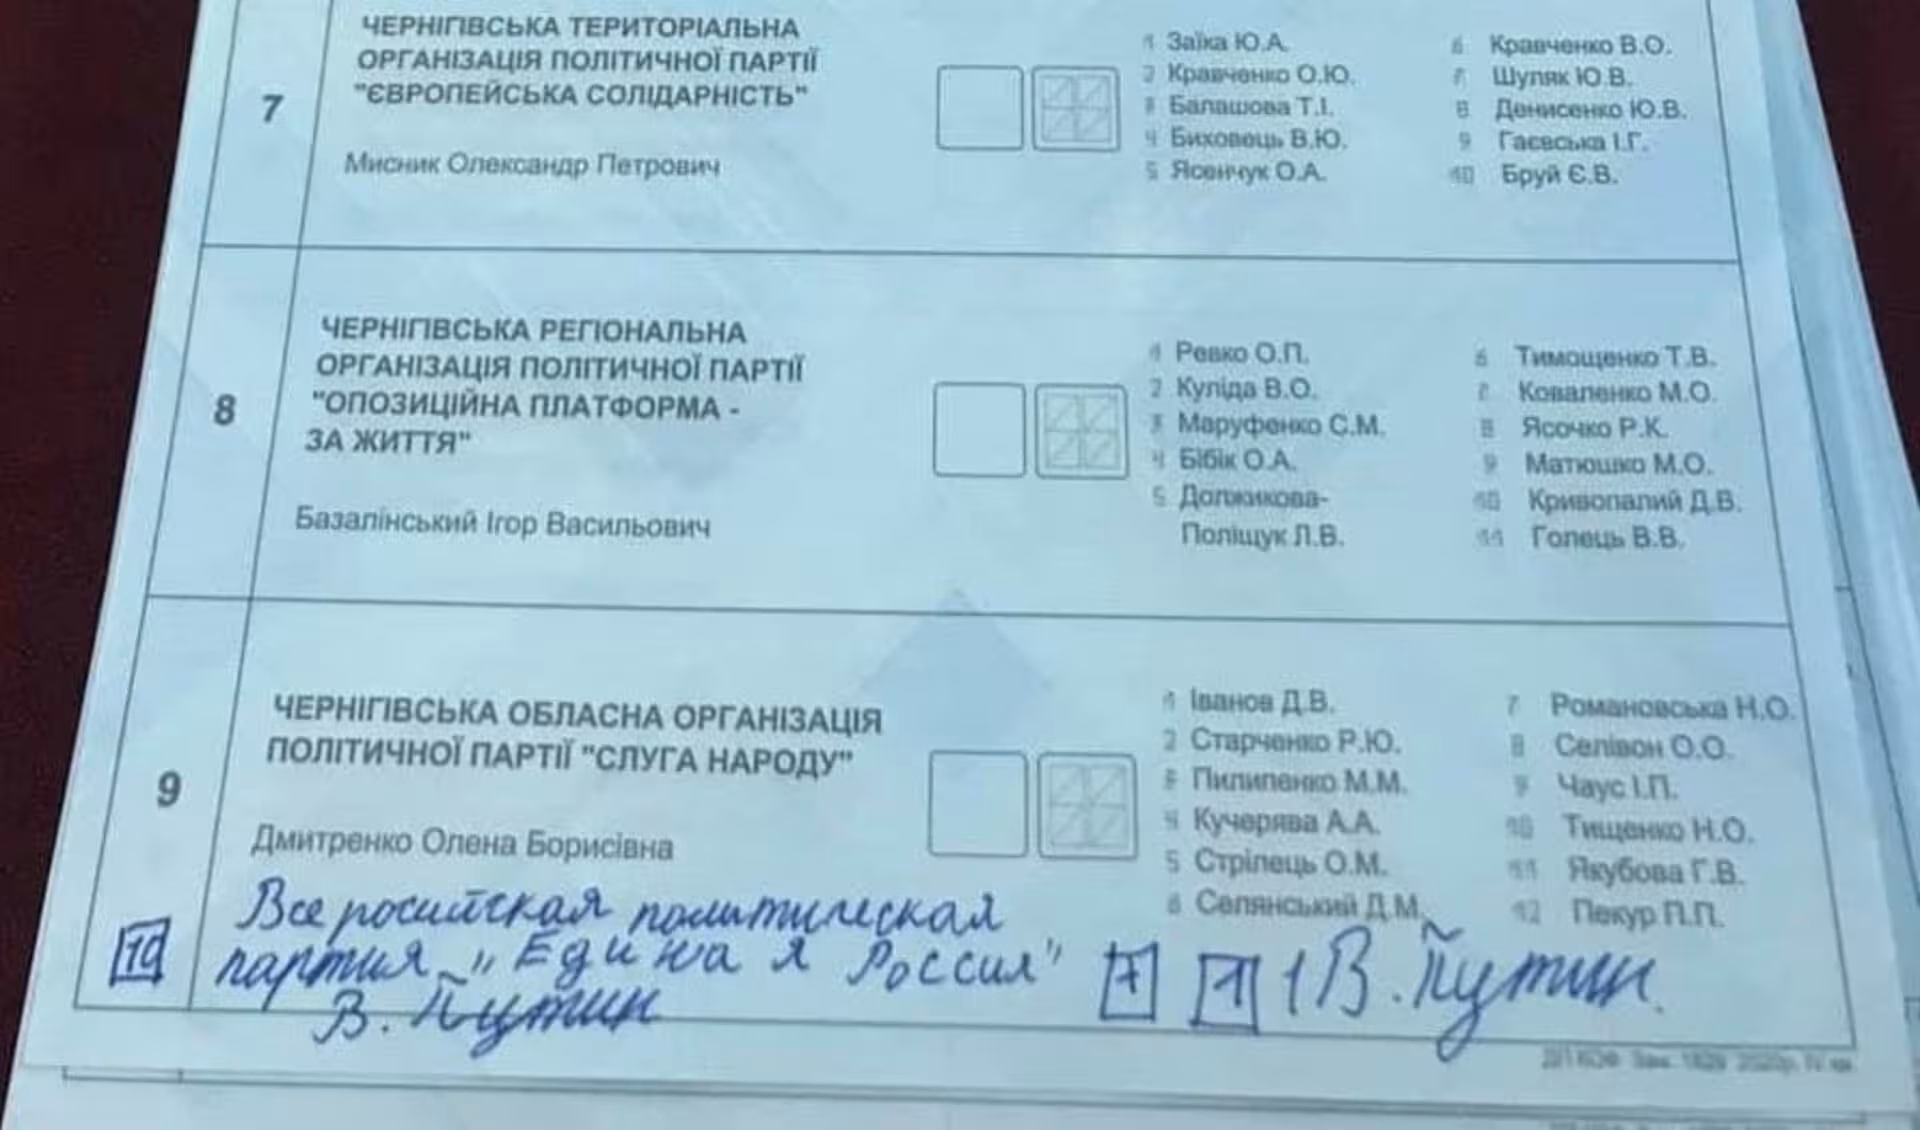 7
ЧЕРНІГІВСЬКА ТЕРИТОРІАЛЬНА
ОРГАНІЗАЦІЯ ПОЛІТИЧНОЇ ПАРТІЇ
"ЄВРОПЕЙСЬКА СОЛІДАРНІСТЬ"
Мисник Олександр Петрович
1 Заїка Ю.А.
2 Кравченко О.Ю.
3 Балашова Т.І.
4 Биховець В.Ю.
5 Ясенчук О.А.
6 Кравченко В.О.
7 Шуляк Ю.В.
8 Денисенко Ю.В.
9 Гаєвська І.Г.
10 Бруй Є.В.
8
ЧЕРНІГІВСЬКА РЕГІОНАЛЬНА
ОРГАНІЗАЦІЯ ПОЛІТИЧНОЇ ПАРТІЇ
"ОПОЗИЦІЙНА ПЛАТФОРМА -
ЗА ЖИТТЯ"
Базалінський Ігор Васильович
1 Ревко О.П.
2 Куліда В.О.
3 Маруфенко С.М.
4 Бібік О.А.
5 Должикова-
Поліщук Л.В.
6 Тимощенко Т.В.
7 Коваленко М.О.
8 Ясочко Р.К.
9 Матюшко М.О.
10 Кривопалий Д.В.
11 Голець В.В.
9
ЧЕРНІГІВСЬКА ОБЛАСНА ОРГАНІЗАЦІЯ
ПОЛІТИЧНОЇ ПАРТІЇ "СЛУГА НАРОДУ"
Дмитренко Олена Борисівна
1 Іванов Д.В.
2 Старченко Р.Ю.
3 Пилипенко М.М.
4 Кучерява А.А.
5 Стрілець О.М.
6 Селянський Д.М.
7 Романовська Н.О.
8 Селівон О.О.
9 Чаус І.П.
10 Тищенко Н.О.
11 Якубова Г.В.
12 Пекур П.П.
10
Всеросийская политическая
партия "Единая Россия"
В. Путин
+ 1 1 В. Путин.